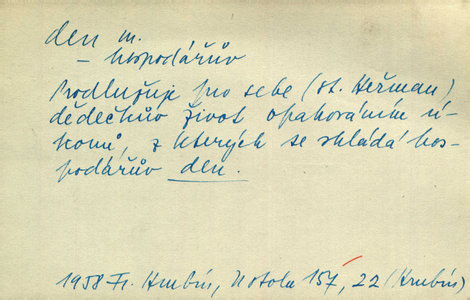 den m.
– hospodářův
Prodlužuje pro sebe (st. Heřman)
dědečkův život opakováním ú-
konů, z kterých se skládá hos-
podářův den.
1958 Fr. Hrubín, U stolu 157, 22 (Hrubín)